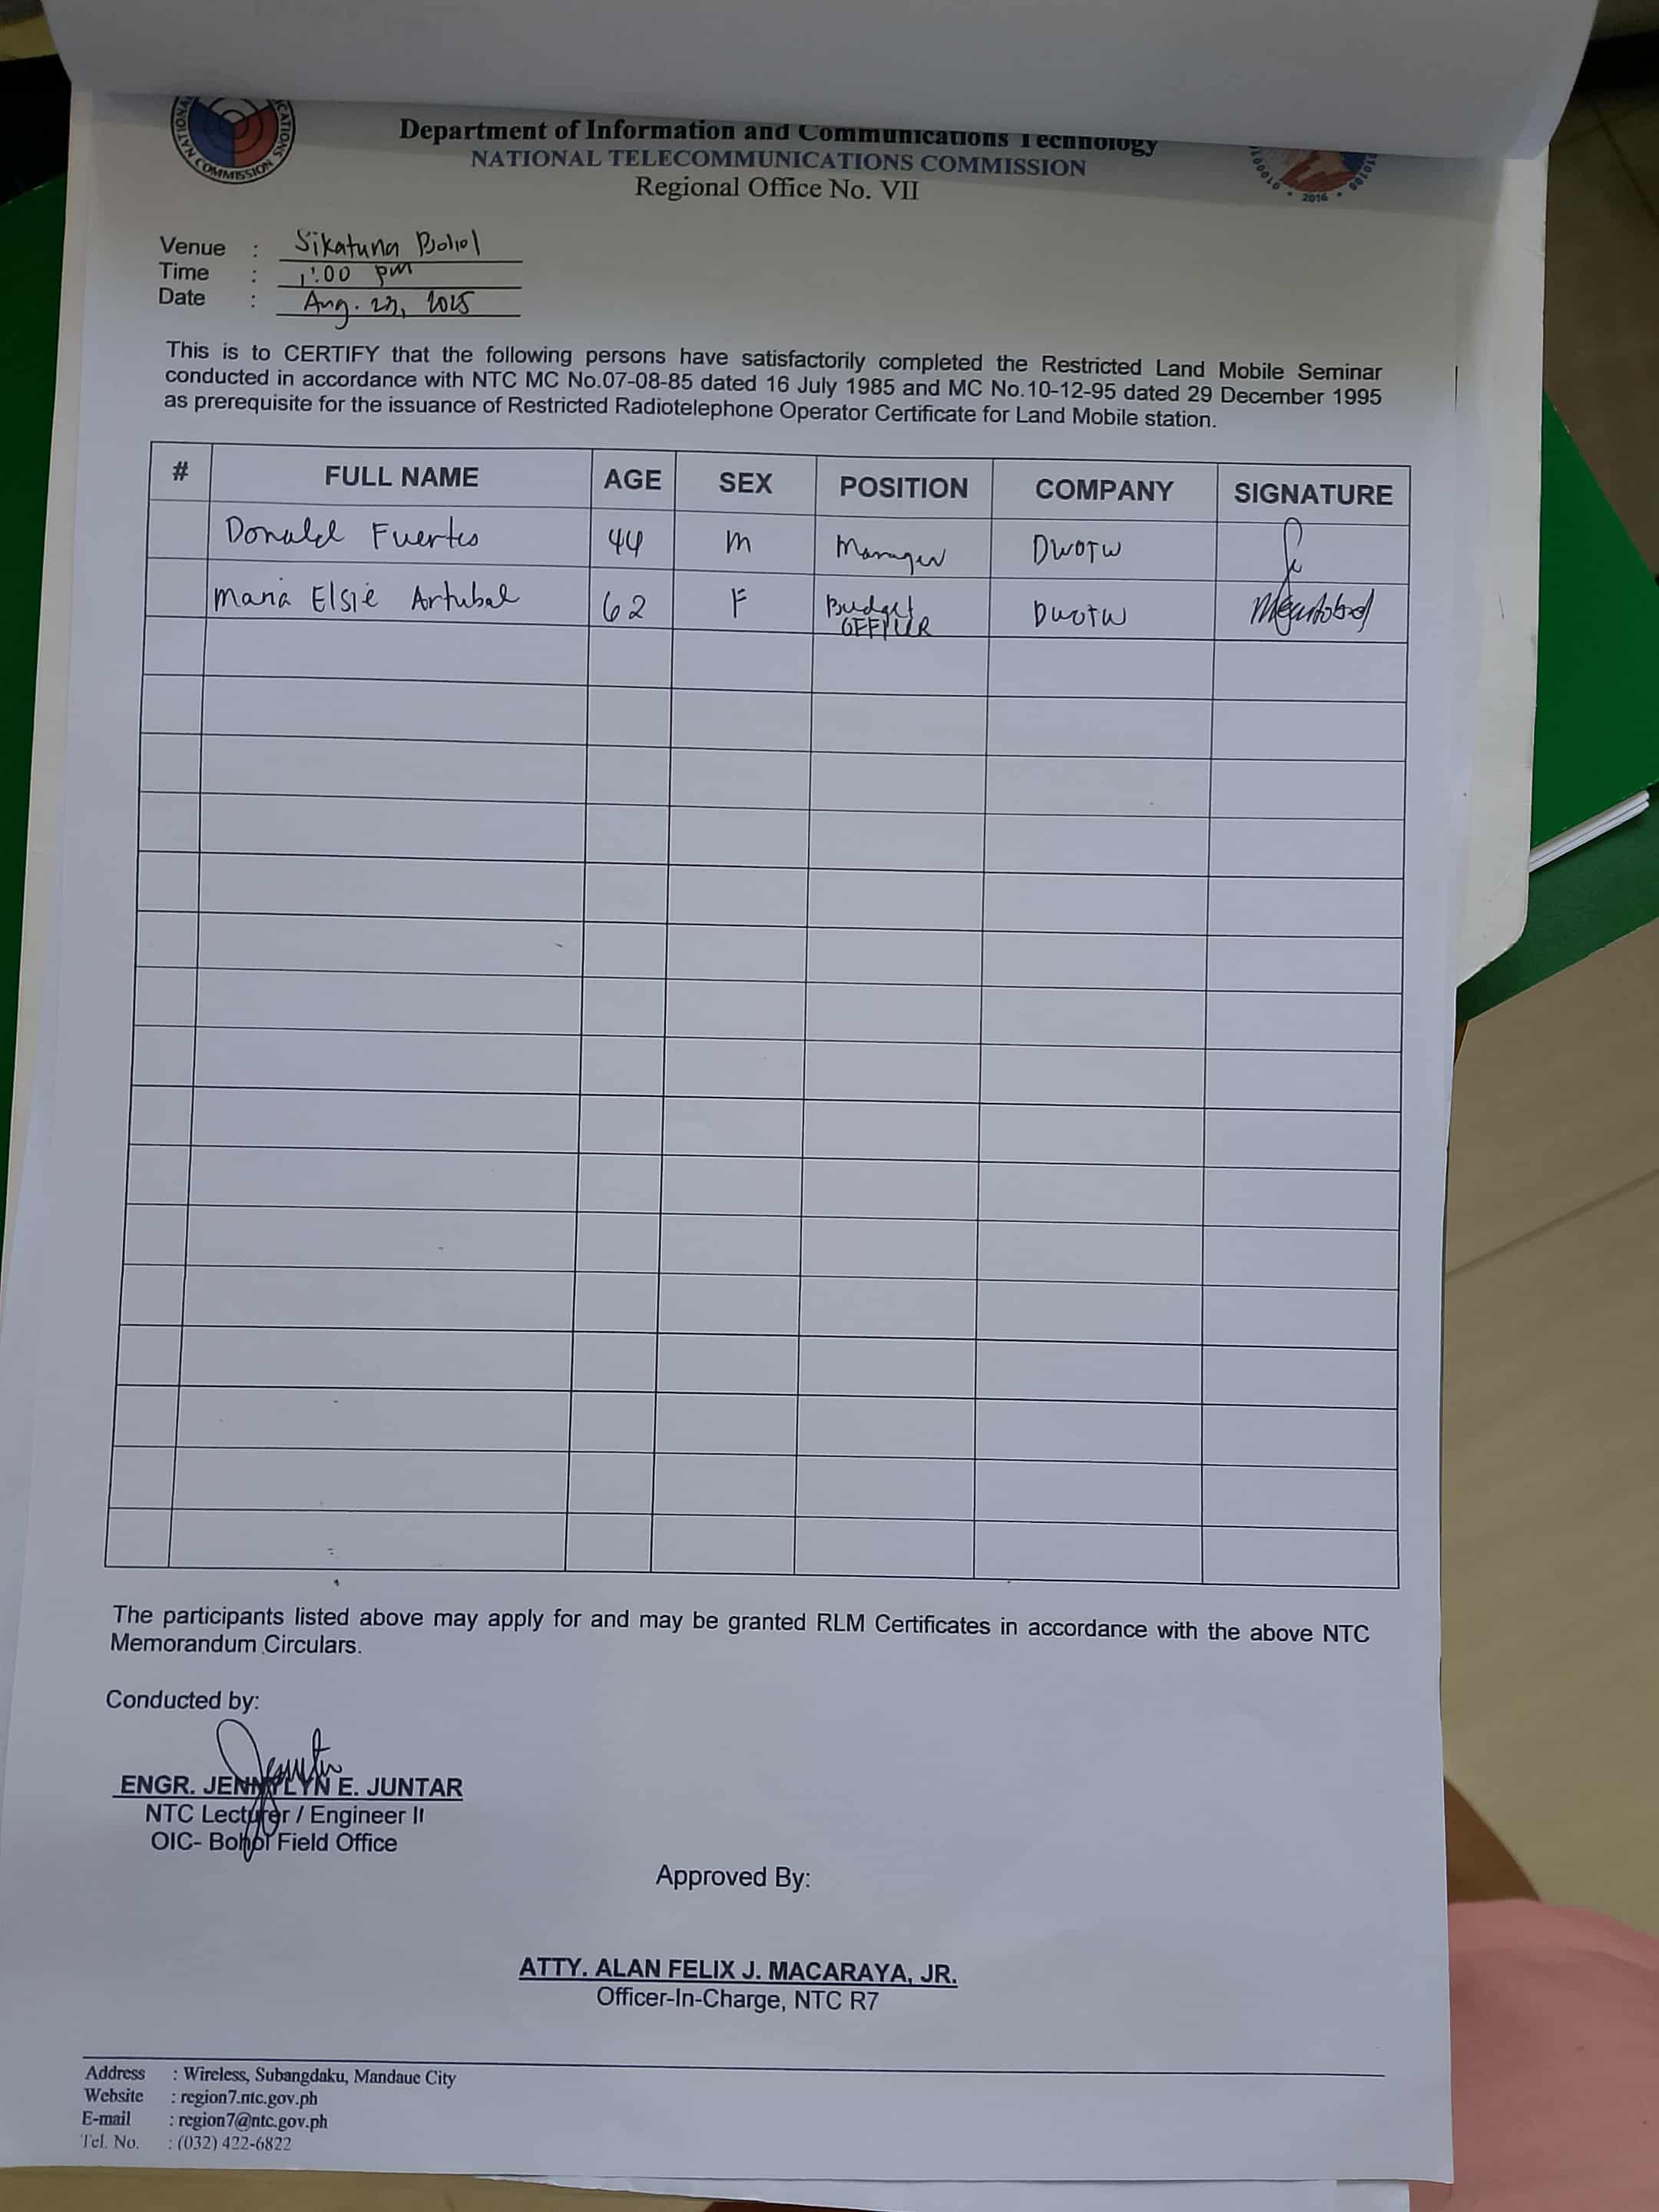 Department of Information and Communications Technology
NATIONAL TELECOMMUNICATIONS COMMISSION
Regional Office No. VII
COMMISSION
2016
Venue : Sikatuna Bohol
Time : 1:00 pm
Date : Aug. 2025
This is to CERTIFY that the following persons have satisfactorily completed the Restricted Land Mobile Seminar
conducted in accordance with NTC MC No.07-08-85 dated 16 July 1985 and MC No.10-12-95 dated 29 December 1995
as prerequisite for the issuance of Restricted Radiotelephone Operator Certificate for Land Mobile station.
# FULL NAME AGE SEX POSITION COMPANY SIGNATURE
Donald Fuertes 44 M Manager DWOTW
Maria Elsie Artubal 62 F Budget DWOTW
OFFICER
The participants listed above may apply for and may be granted RLM Certificates in accordance with the above NTC
Memorandum Circulars.
Conducted by:
ENGR. JENNYLYN E. JUNTAR
NTC Lecturer / Engineer II
OIC- Bohol Field Office
Approved By:
ATTY. ALAN FELIX J. MACARAYA, JR.
Officer-In-Charge, NTC R7
Address : Wireless, Subangdaku, Mandaue City
Website : region7.ntc.gov.ph
E-mail : region7@ntc.gov.ph
Tel. No. : (032) 422-6822